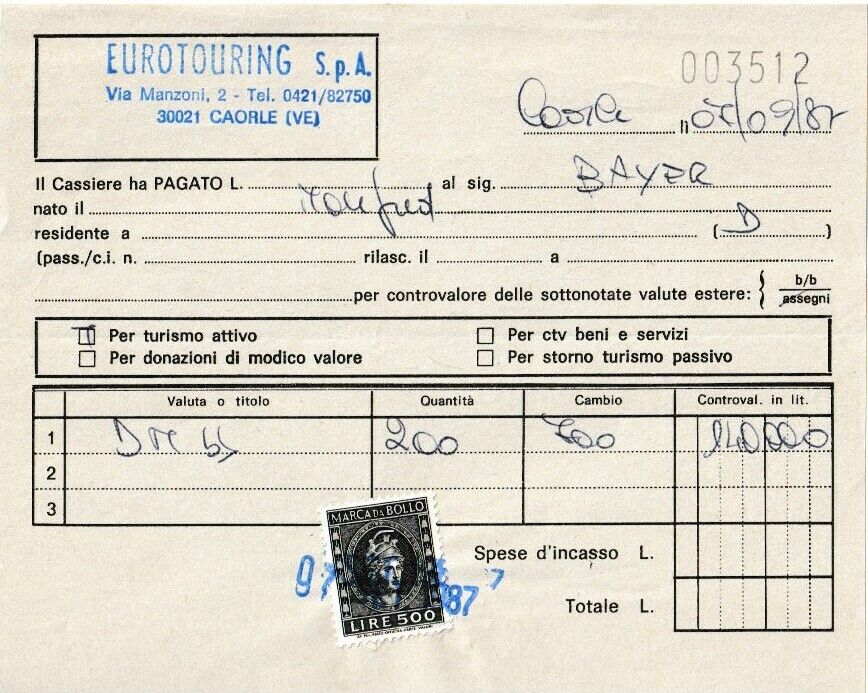 EUROTOURING S.p.A.
Via Manzoni, 2 - Tel. 0421/82750
30021 CAORLE (VE)
003512
Caorle li 07/09/87
Il Cassiere ha PAGATO L. al sig. BAYER
nato il Manfred
residente a (D)
(pass./c.i. n. rilasc. il a
per controvalore delle sottonotate valute estere: { b/b
assegni
Per turismo attivo Per ctv beni e servizi
Per donazioni di modico valore Per storno turismo passivo
Valuta o titolo Quantità Cambio Controval. in lit.
1 DM bb 200 700 140000
2
3
MARCA DA BOLLO
Spese d'incasso L.
87
LIRE 500
Totale L.